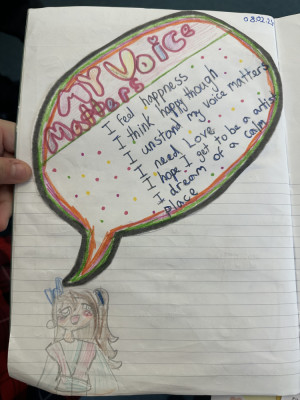 08.02.24
MY Voice
Matters
I feel happness
I think happy though
I unstond my voice matters
I need Love
I hope I get to be a artist
I dream of a calm
place